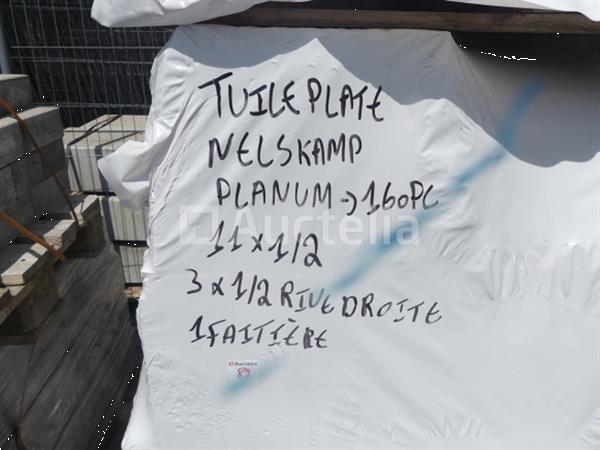 TUILE PLATE
NELSKAMP
PLANUM → 160PC
11 x 1/2
3 x 1/2 RIVE DROITE
1 FAITIÈRE
Auctelia
Auctelia